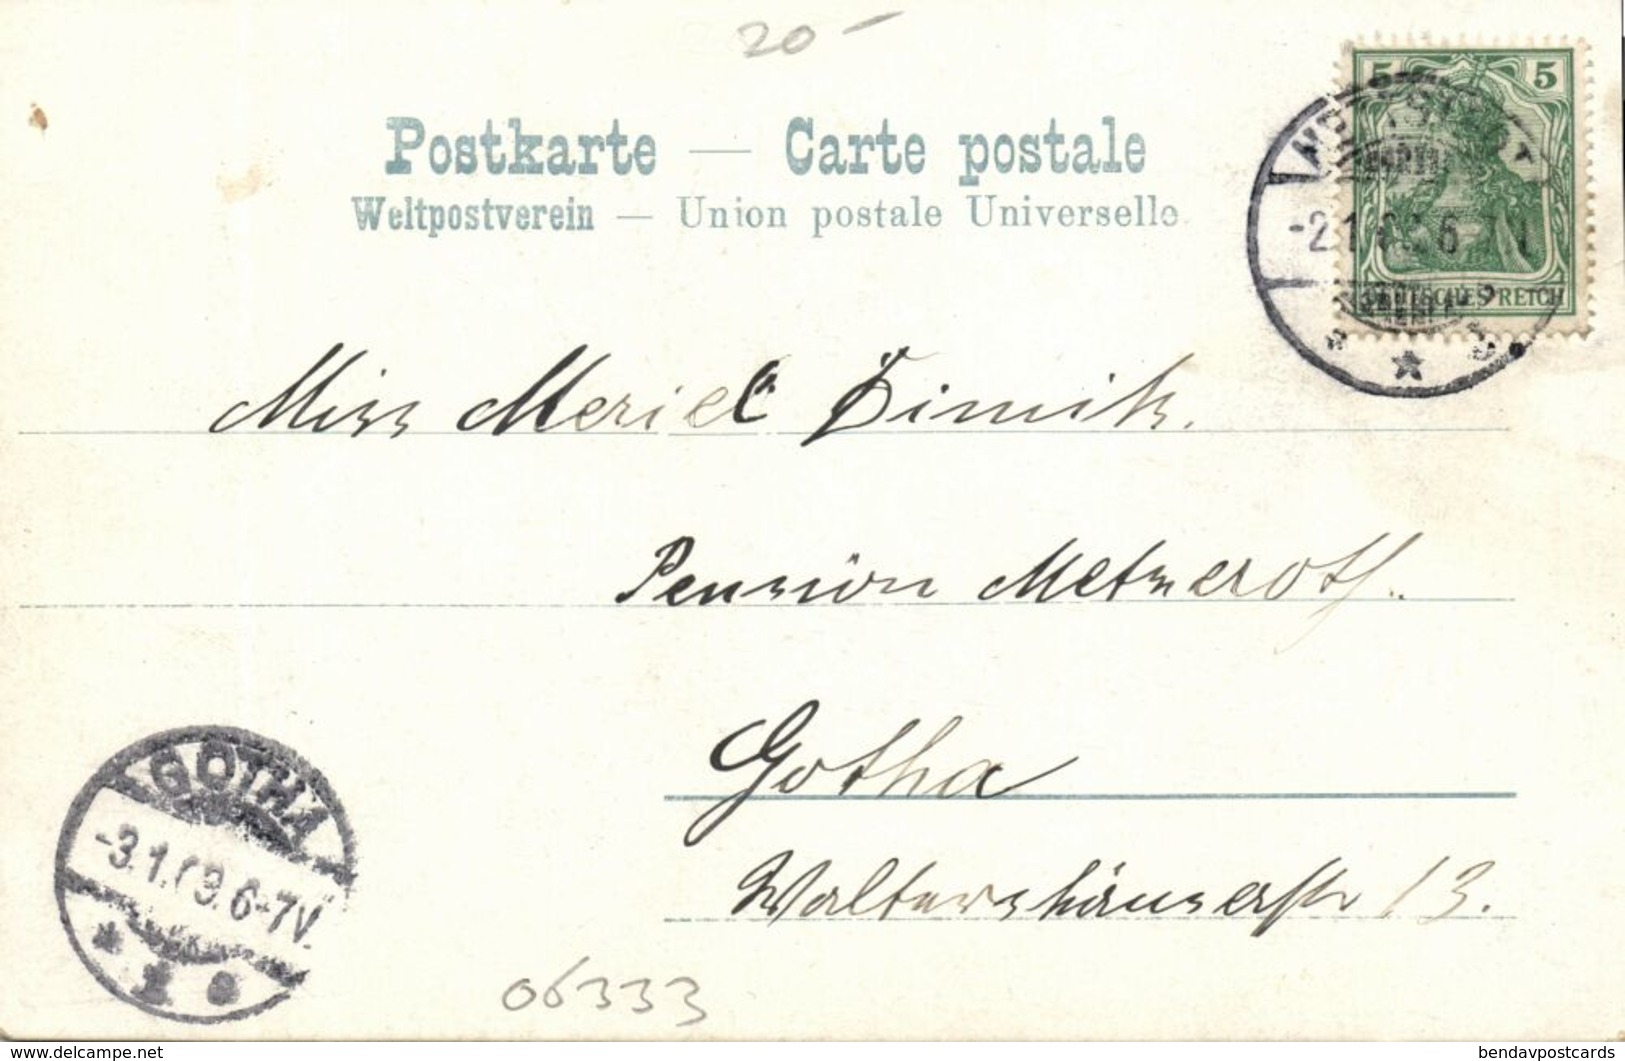 20-
Postkarte — Carte postale
Weltpostverein — Union postale Universelle
5 5
DEUTSCHES REICH
-2.1.
Miss Meriel Dimik.
Pension Metzeroth.
Gotha
Waltershäuserstr 13.
GOTHA
-3.1.09. 6-7V.
* 1 *
06333
delcampe.net
bendavpostcards